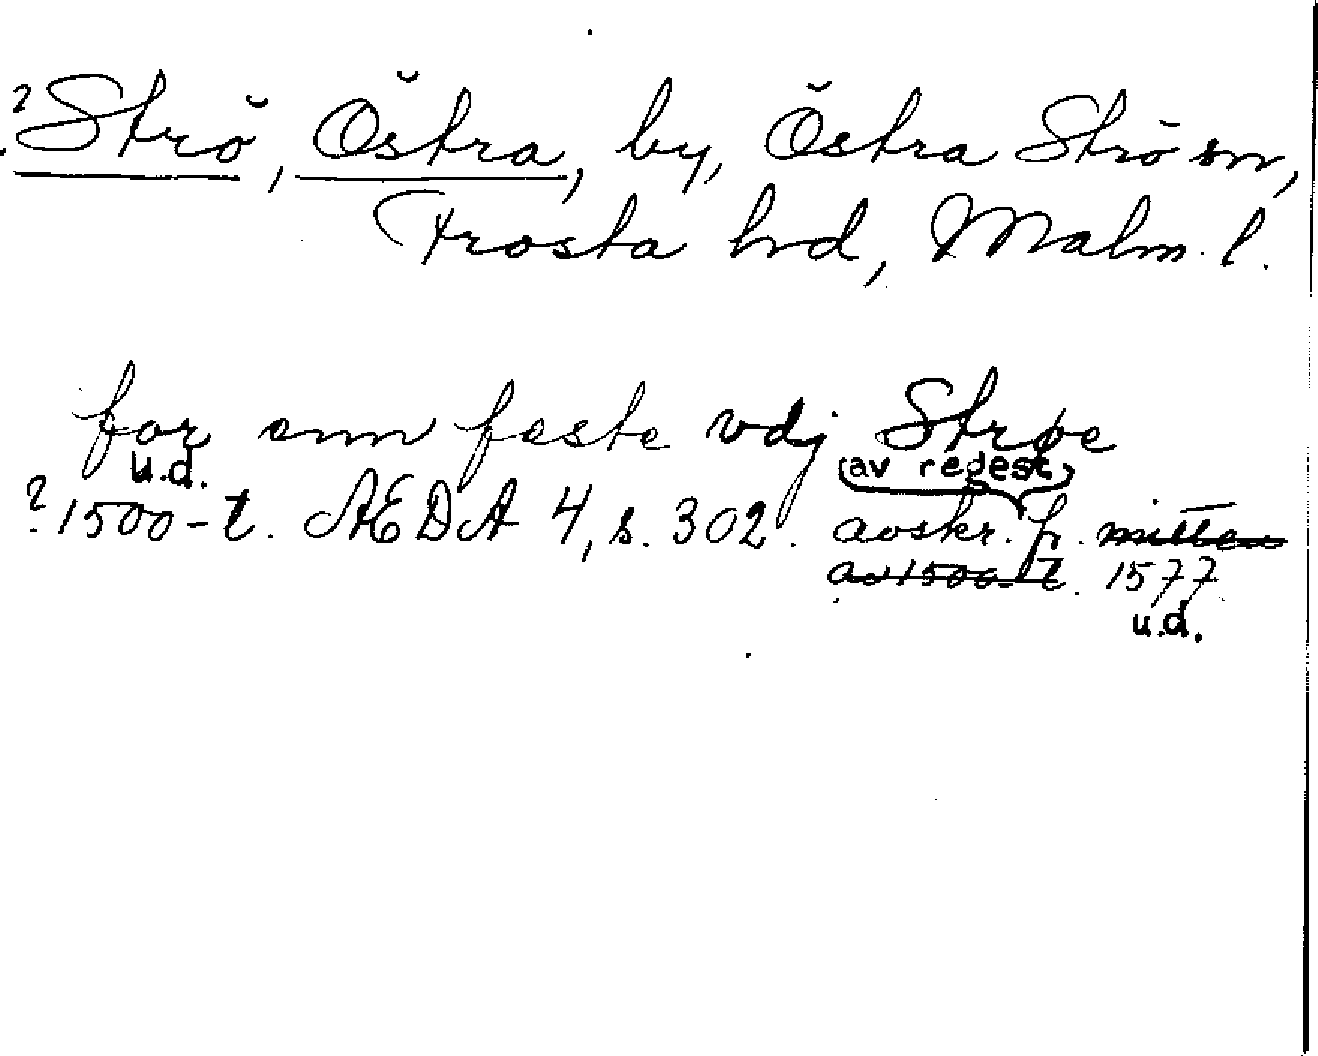 ? Strö, Östra, by, Östra Strö sn,
Frosta hd, Malm. l.
for snn feste vdj Strøe
u.d. (av regest)
? 1500-t. AEDA 4, s. 302. avskr. fr. mitten
av 1500-t. 1577
u.d.